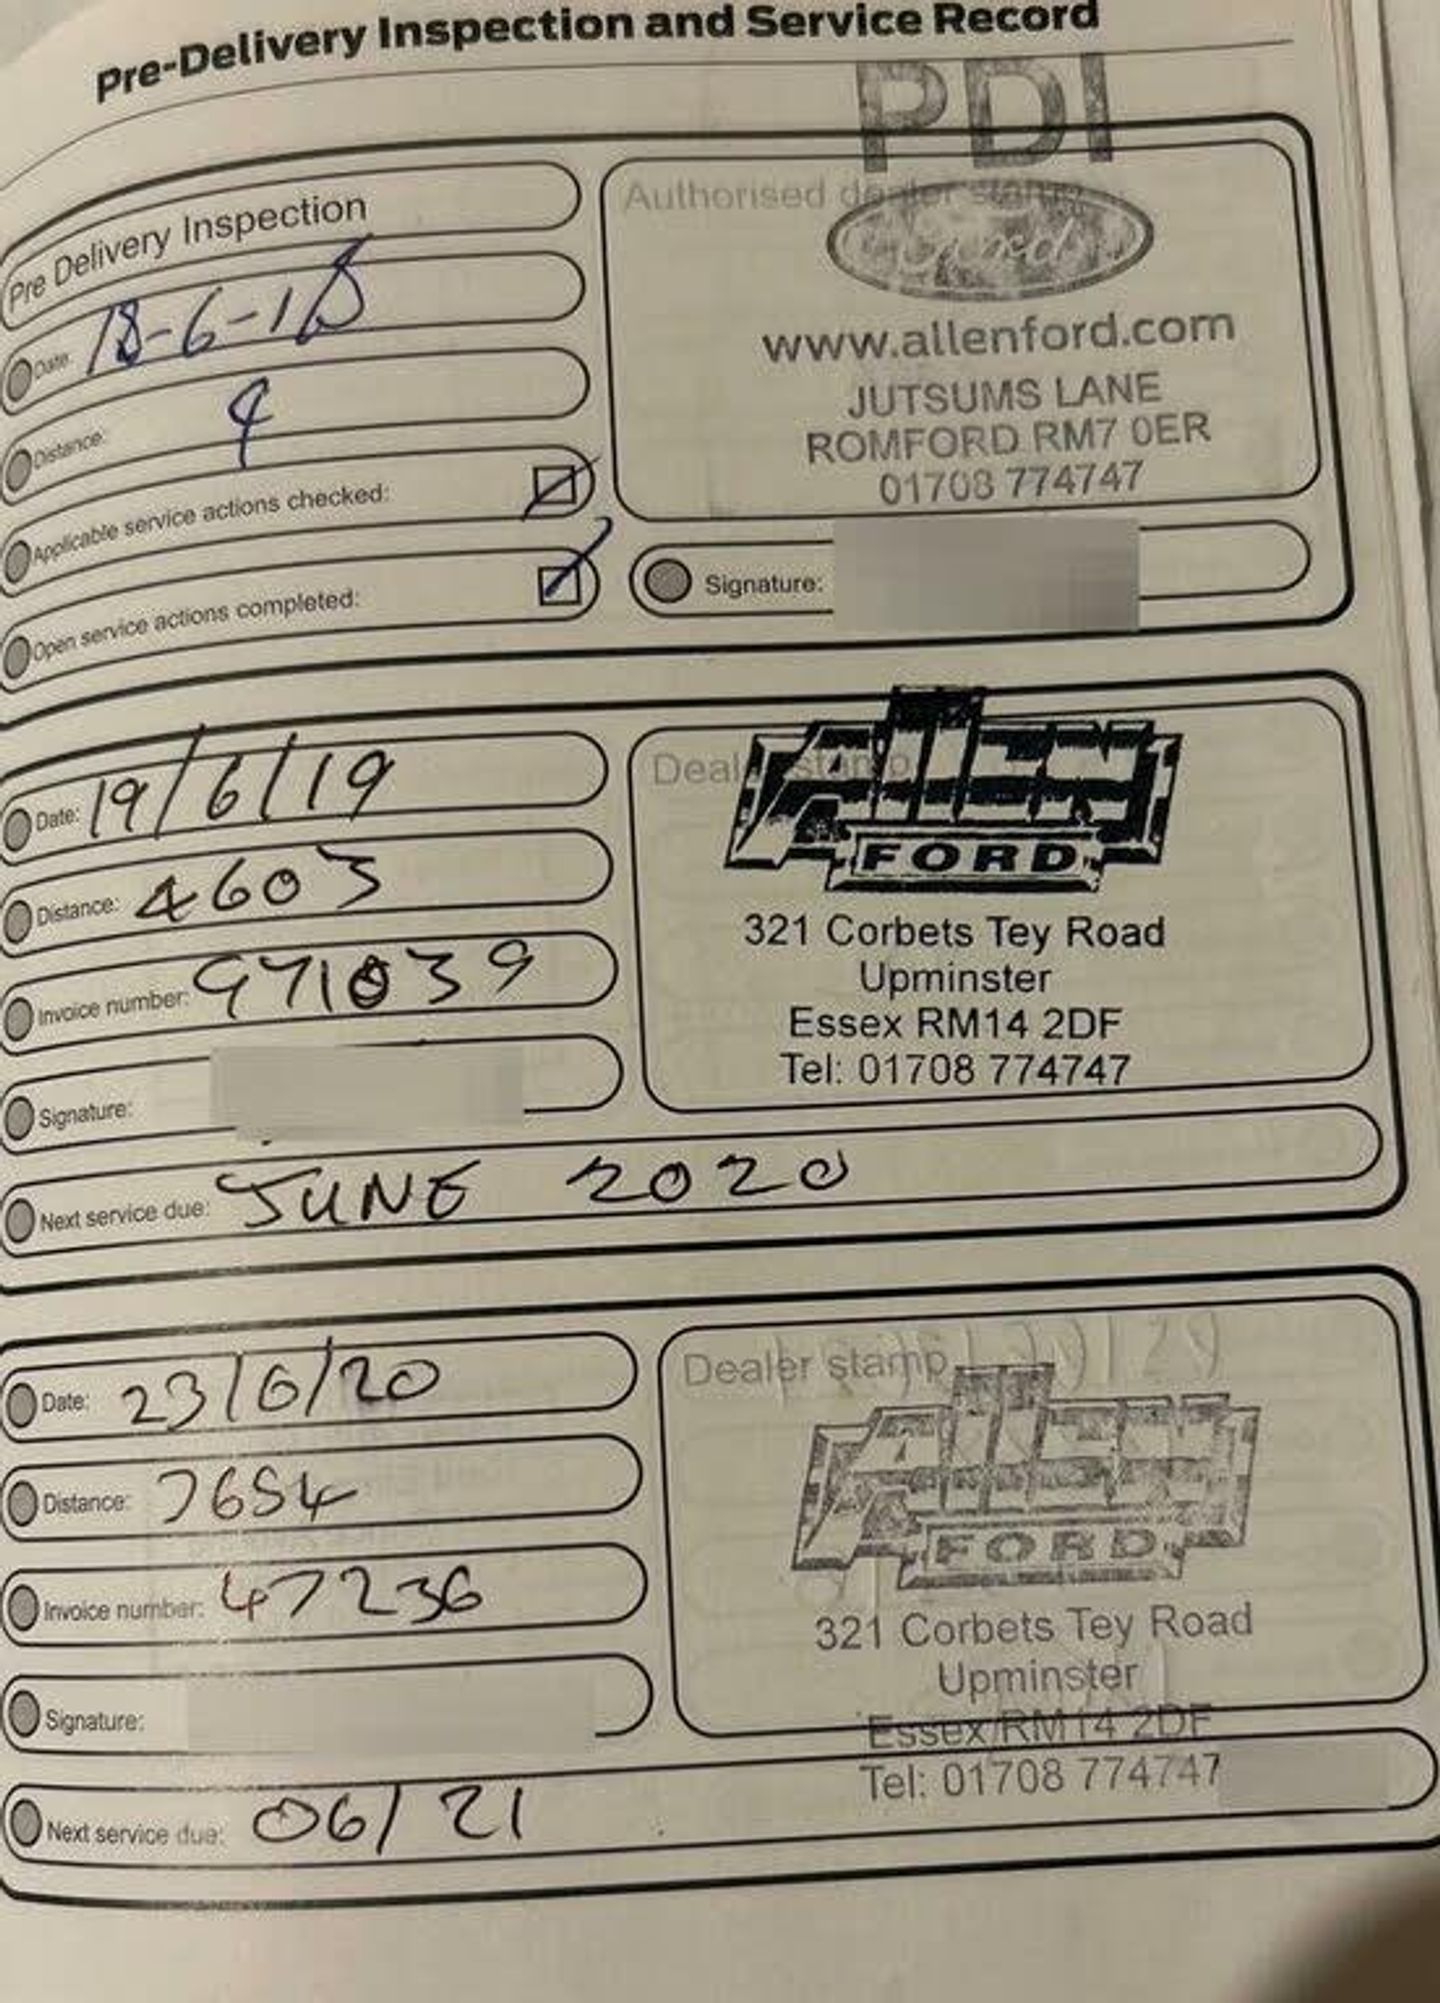 Pre-Delivery Inspection and Service Record
PDI
Pre Delivery Inspection
Authorised dealer stamp
Date: 18-6-18
Distance: 9
Applicable service actions checked:
Open service actions completed:
Ford
www.allenford.com
JUTSUMS LANE
ROMFORD RM7 0ER
01708 774747
Signature:
Date: 19/6/19
Distance: 4603
Invoice number: 971039
Signature:
Next service due: JUNE 2020
Dealer stamp
Allen
FORD
321 Corbets Tey Road
Upminster
Essex RM14 2DF
Tel: 01708 774747
Date: 23/6/20
Distance: 7654
Invoice number: 47236
Signature:
Next service due: 06/21
Dealer stamp
Allen
FORD
321 Corbets Tey Road
Upminster
Essex RM14 2DF
Tel: 01708 774747